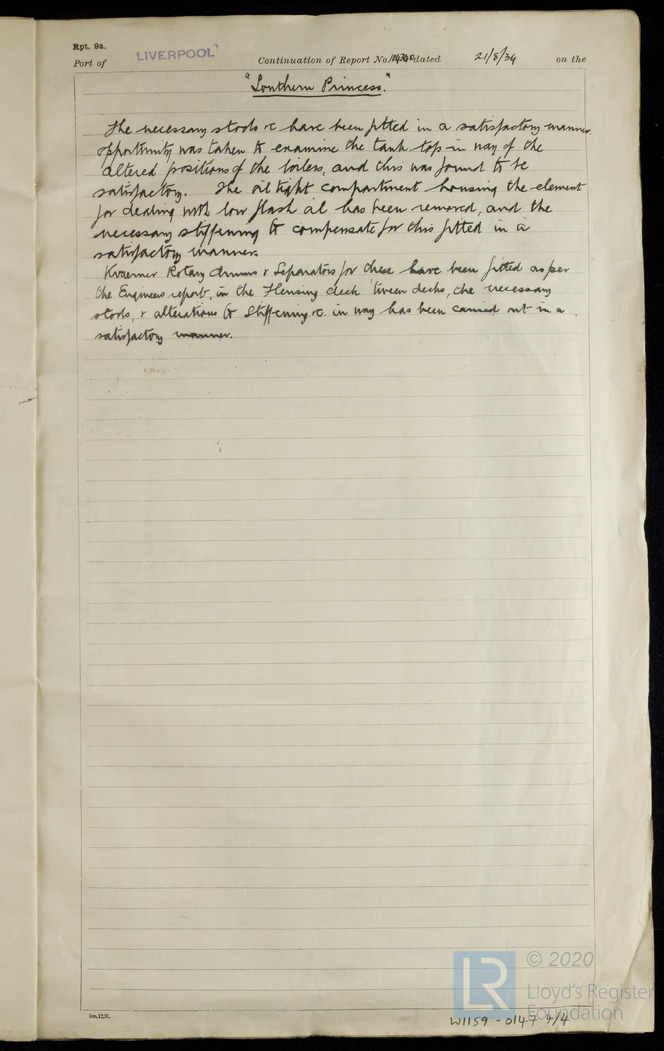 Rpt. 9a.
Port of LIVERPOOL Continuation of Report No. dated 21/8/34 on the
"Southern Princess."
The necessary stools &c have been fitted in a satisfactory manner.
opportunity was taken to examine the tank top in way of the
altered positions of the boilers, and this was found to be
satisfactory. The oil tight compartment housing the element
for dealing with low flash oil has been removed, and the
necessary stiffening to compensate for this fitted in a
satisfactory manner.
Kvaerner Rotary drums & Separators for these have been fitted as per
the Engineers report, in the Flensing deck 'tween decks, the necessary
stools, & alterations to Stiffening &c. in way has been carried out in a
satisfactory manner.
© 2020
LR
Lloyd's Register
Foundation
W1159-0147 4/4